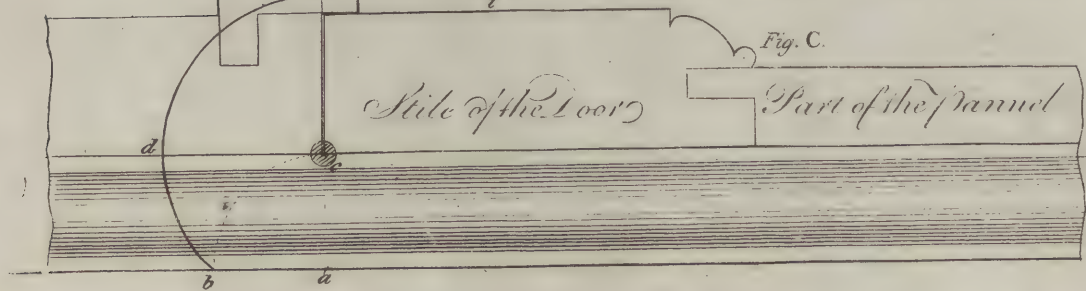 Fig. C.
Stile of the Door
Part of the Pannel
d
c
b
a